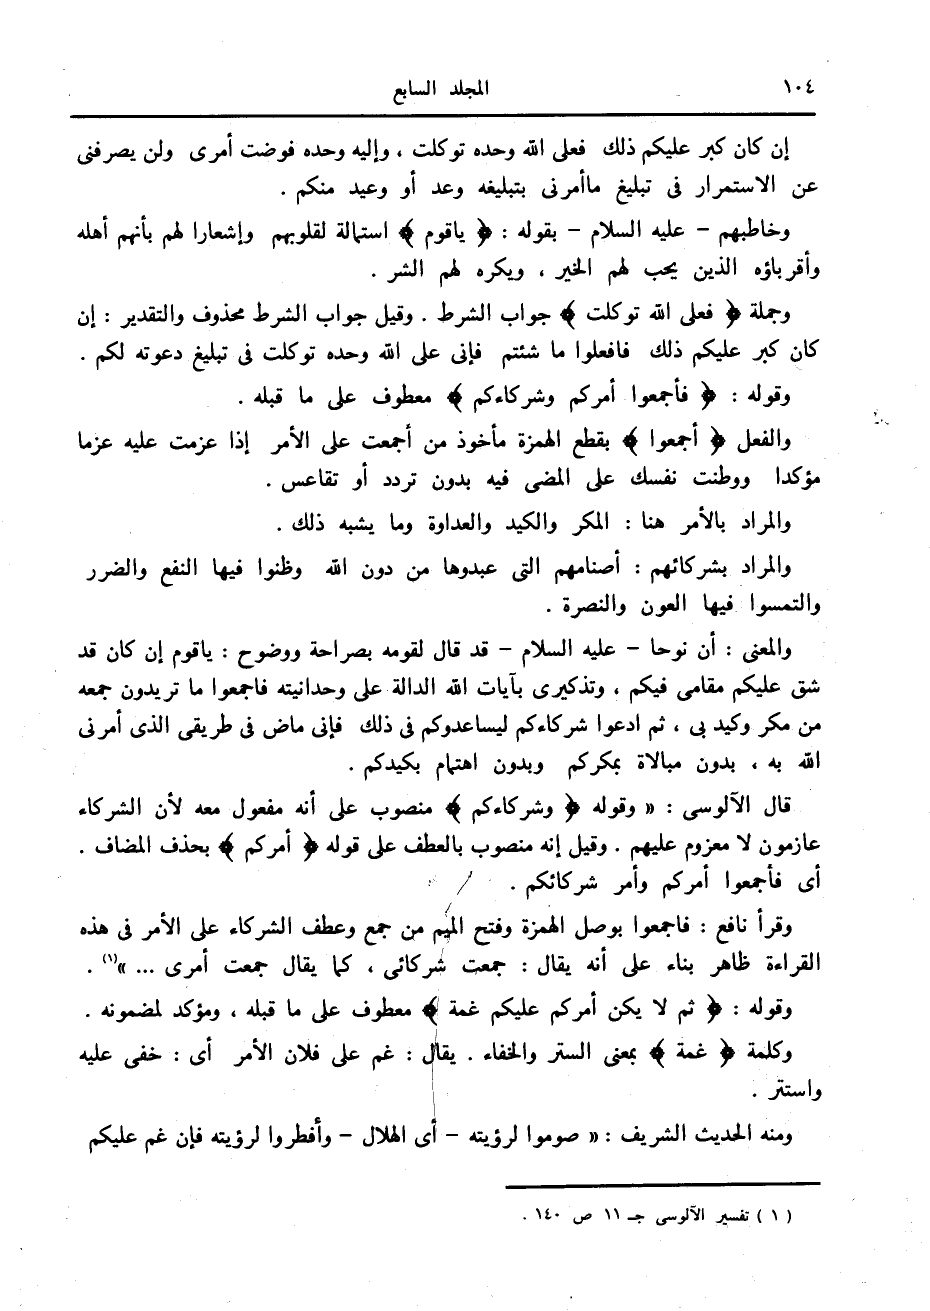 ١٠٤ المجلد السابع
إن كان كبر عليكم ذلك فعلى الله وحده توكلت ، وإليه وحده فوضت أمرى ولن يصرفنى
عن الاستمرار فى تبليغ ماأمرنى بتبليغه وعد أو وعيد منكم .
وخاطبهم – عليه السلام – بقوله : ﴿ ياقوم ﴾ استمالة لقلوبهم وإشعارا لهم بأنهم أهله
وأقرباؤه الذين يحب لهم الخير ، ويكره لهم الشر .
وجملة ﴿ فعلى الله توكلت ﴾ جواب الشرط . وقيل جواب الشرط محذوف والتقدير : إن
كان كبر عليكم ذلك فافعلوا ما شئتم فإنى على الله وحده توكلت فى تبليغ دعوته لكم .
وقوله : ﴿ فأجمعوا أمركم وشركاءكم ﴾ معطوف على ما قبله .
والفعل ﴿ أجمعوا ﴾ بقطع الهمزة مأخوذ من أجمعت على الأمر إذا عزمت عليه عزما
مؤكدا ووطنت نفسك على المضى فيه بدون تردد أو تقاعس .
والمراد بالأمر هنا : المكر والكيد والعداوة وما يشبه ذلك .
والمراد بشركائهم : أصنامهم التى عبدوها من دون الله وظنوا فيها النفع والضرر
والتمسوا فيها العون والنصرة .
والمعنى : أن نوحا – عليه السلام – قد قال لقومه بصراحة ووضوح : ياقوم إن كان قد
شق عليكم مقامى فيكم ، وتذكيرى بآيات الله الدالة على وحدانيته فاجمعوا ما تريدون جمعه
من مكر وكيد بى ، ثم ادعوا شركاءكم ليساعدوكم فى ذلك فإنى ماض فى طريقى الذى أمرنى
الله به ، بدون مبالاة بمكركم وبدون اهتمام بكيدكم .
قال الآلوسى : « وقوله ﴿ وشركاءكم ﴾ منصوب على أنه مفعول معه لأن الشركاء
عازمون لا معزوم عليهم . وقيل إنه منصوب بالعطف على قوله ﴿ أمركم ﴾ بحذف المضاف .
أى فأجمعوا أمركم وأمر شركائكم .
وقرأ نافع : فاجمعوا بوصل الهمزة وفتح الميم من جمع وعطف الشركاء على الأمر فى هذه
القراءة ظاهر بناء على أنه يقال : جمعت شركائى ، كما يقال جمعت أمرى ... »(١) .
وقوله : ﴿ ثم لا يكن أمركم عليكم غمة ﴾ معطوف على ما قبله ، ومؤكد لمضمونه .
وكلمة ﴿ غمة ﴾ بمعنى الستر والخفاء . يقال : غم على فلان الأمر أى : خفى عليه
واستتر .
ومنه الحديث الشريف : « صوموا لرؤيته – أى الهلال – وأفطروا لرؤيته فإن غم عليكم
( ١ ) تفسير الآلوسى جـ ١١ ص ١٤٠ .